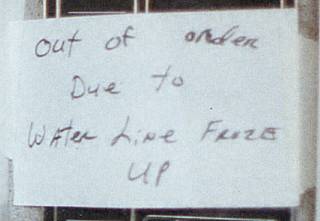 out of order
Due to
Water Line Froze
UP